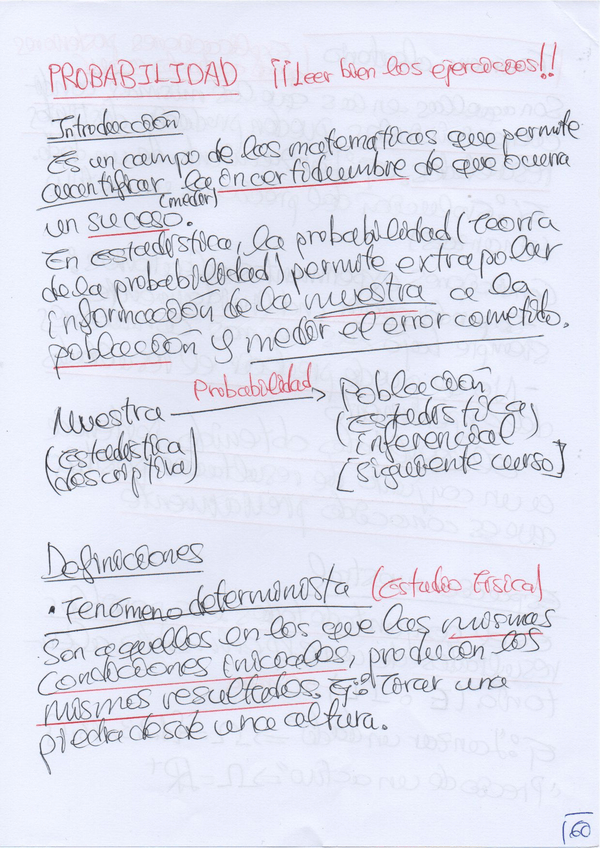 PROBABILIDAD ¡¡Leer bien los ejercicios!!
Introducción
Es un campo de las matemáticas que permite
cuantificar la incertidumbre de que ocurra
(medir)
un suceso.
En estadística, la probabilidad (Teoría
de la probabilidad) permite extrapolar
información de la muestra a la
población y medir el error cometido.
Probabilidad
Muestra → Población
(estadística descriptiva) (estadística inferencial)
[siguiente curso]
Definiciones
• Fenómeno determinista (Estudio Física)
Son aquellos en los que las mismas
condiciones iniciales, producen los
mismos resultados. Ej: Tirar una
piedra desde una altura.
160